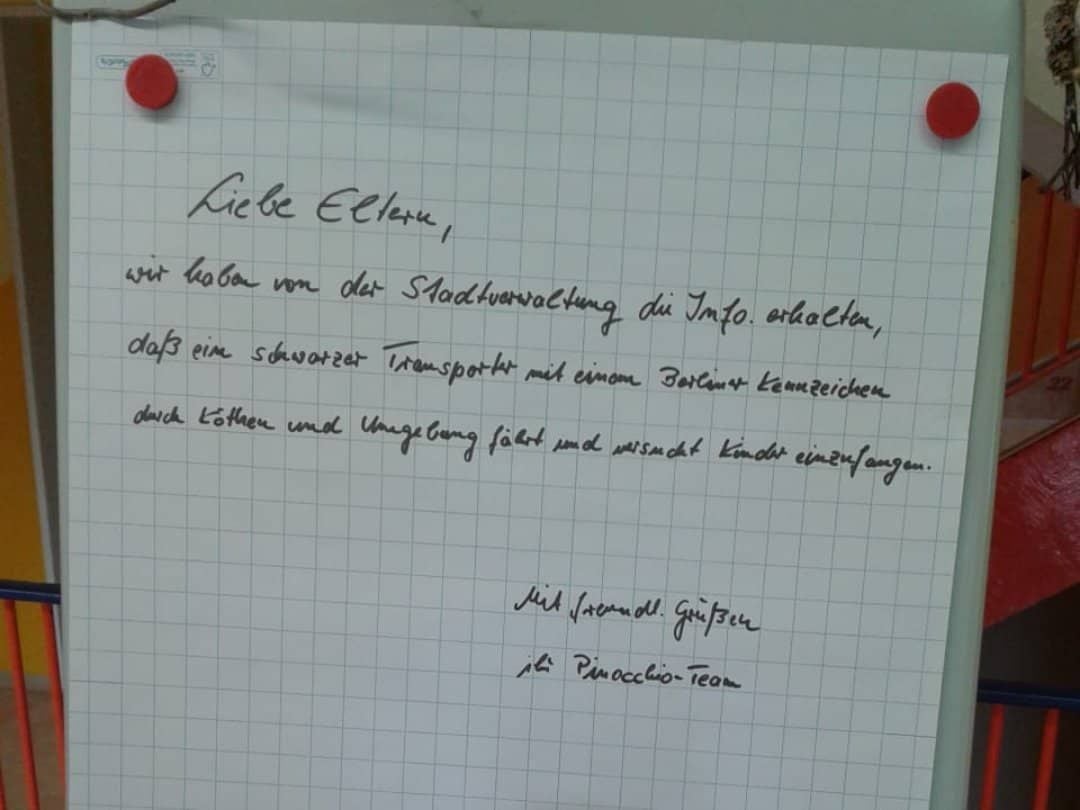 Liebe Eltern,
wir haben von der Stadtverwaltung die Info. erhalten,
daß ein schwarzer Transporter mit einem Berliner Kennzeichen
durch Köthen und Umgebung fährt und versucht Kinder einzufangen.
Mit freundl. Grüßen
ihr Pinocchio-Team
22